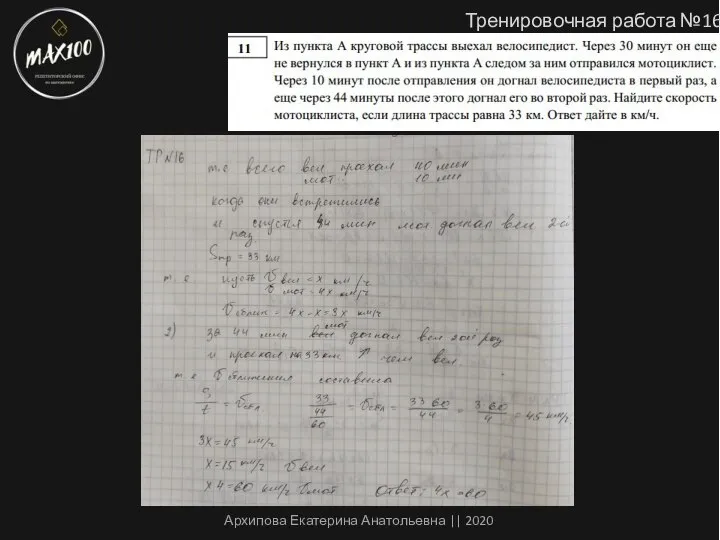 Тренировочная работа №16
MAX100
РЕПЕТИТОРСКИЙ ОФИС
11
Из пункта А круговой трассы выехал велосипедист. Через 30 минут он еще
не вернулся в пункт А и из пункта А следом за ним отправился мотоциклист.
Через 10 минут после отправления он догнал велосипедиста в первый раз, а
еще через 44 минуты после этого догнал его во второй раз. Найдите скорость
мотоциклиста, если длина трассы равна 33 км. Ответ дайте в км/ч.
ТР№16
т.е всего вел проехал 40 мин
мот 10 мин
когда они встретились
и спустя 44 мин мот догнал вел 2й
раз
Sтр = 33 км
т.е пусть V вел = x км/ч
V мот = 4x км/ч
Vсближ = 4x - x = 3x км/ч
2) за 44 мин мот догнал вел 2ой раз
и проехал на 33 км ↑ чем вел
т.е V сближения составила
S/t = Vсбл 33/(44/60) = Vсбл = 33·60/44 = 3·60/4 = 45 км/ч
3x = 45 км/ч
x = 15 км/ч V вел
x4 = 60 км/ч Vмот Ответ: 4x = 60
Архипова Екатерина Анатольевна || 2020